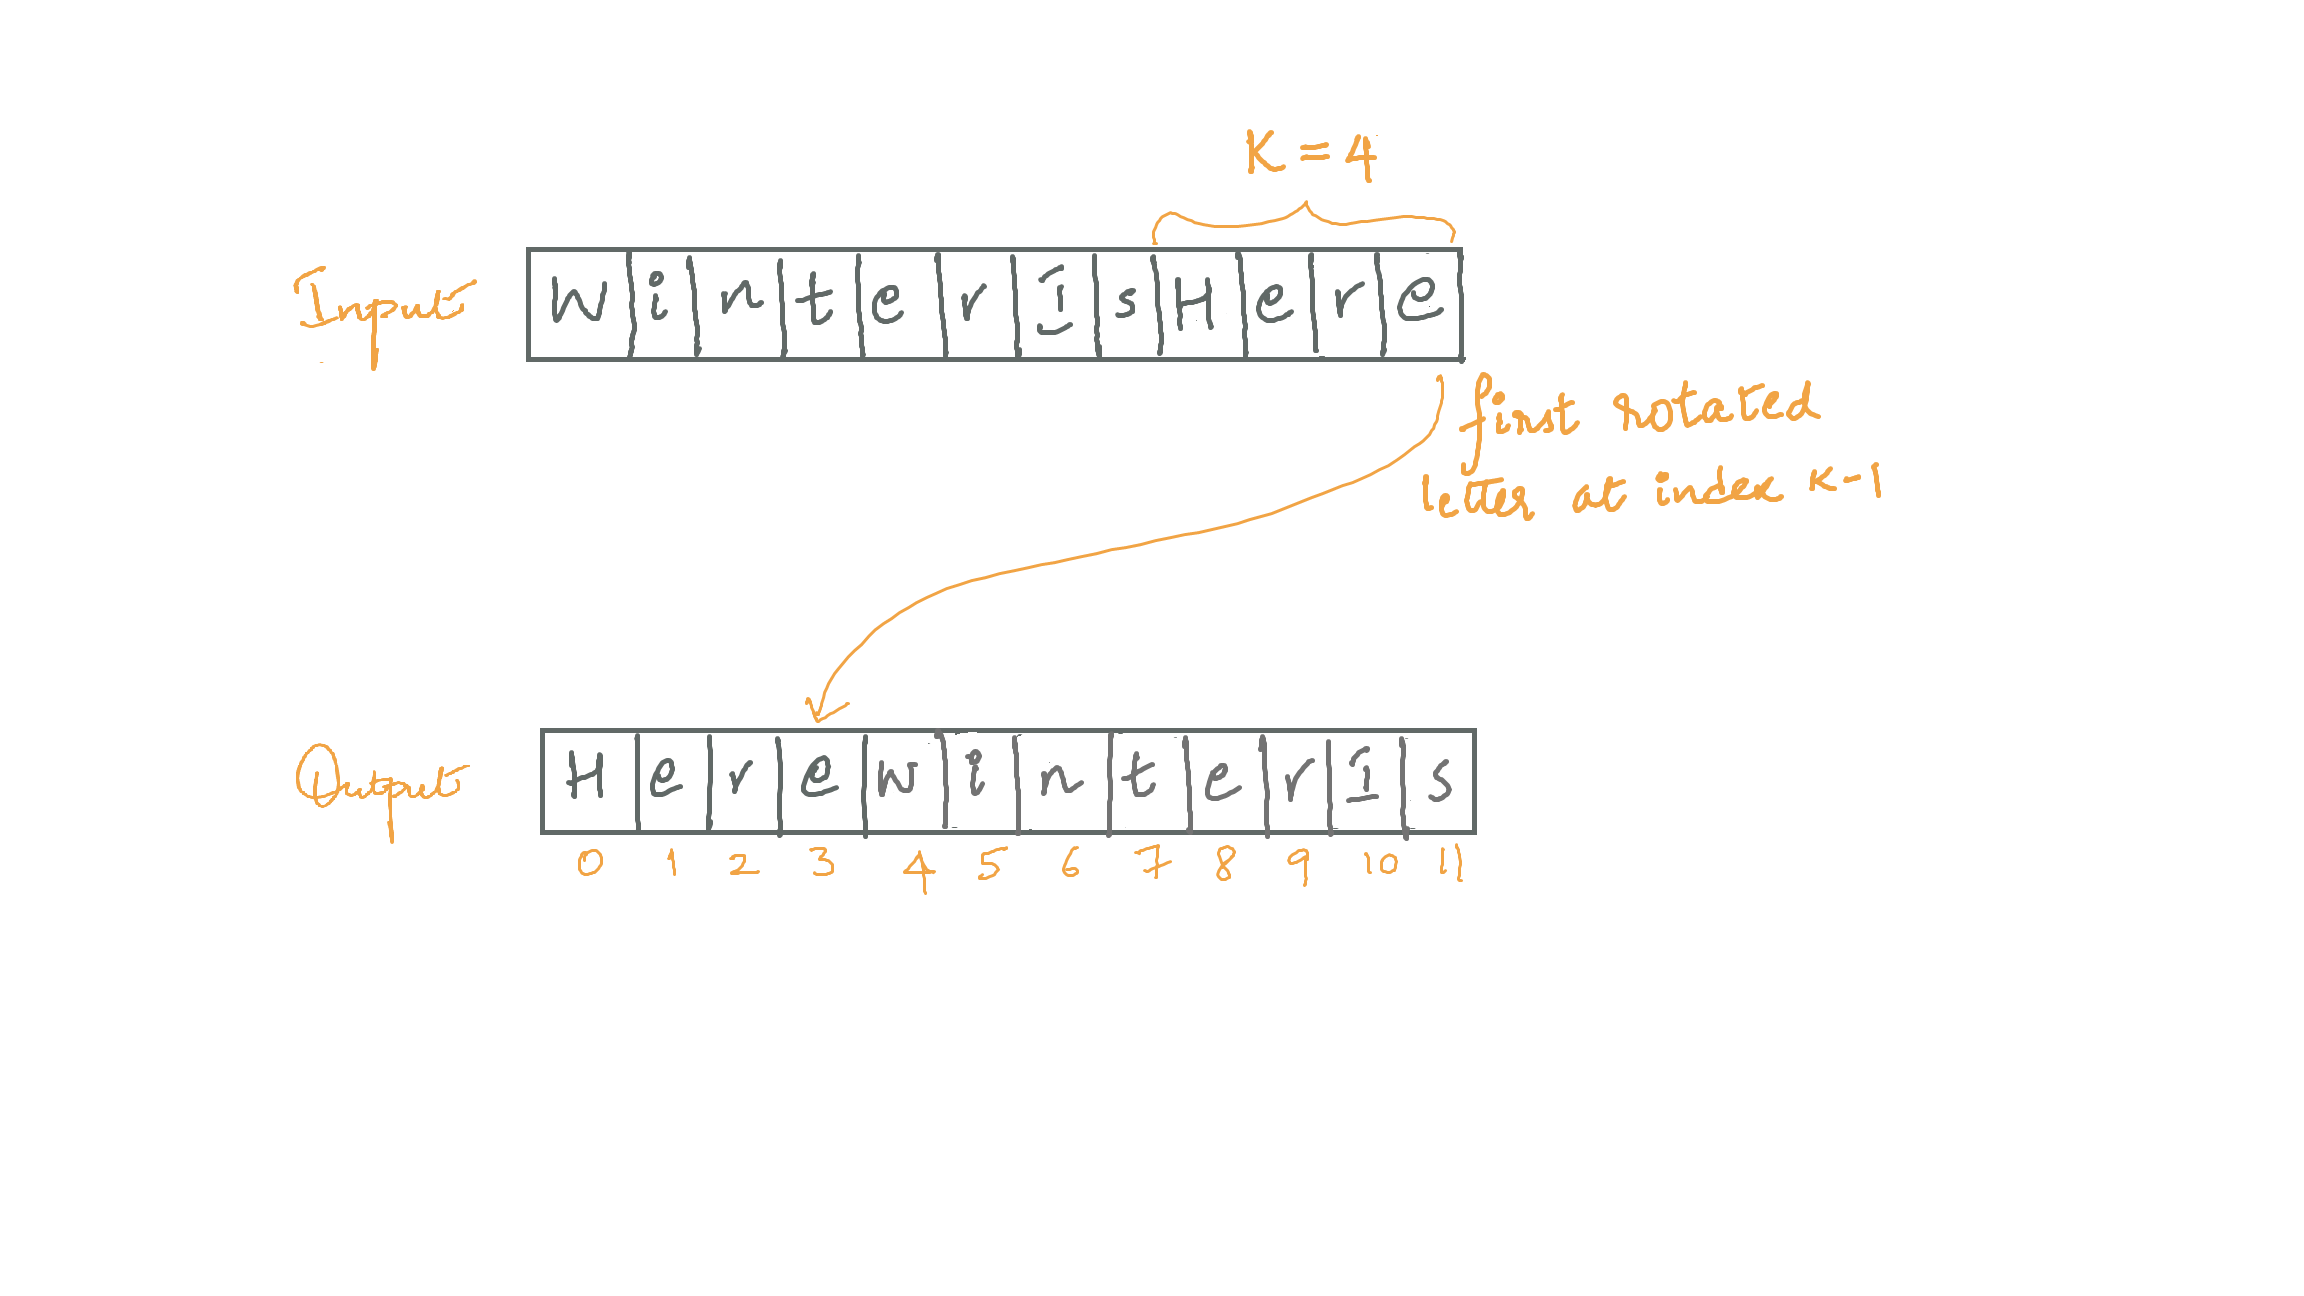 K = 4
Input
W i n t e r I s H e r e
first rotated
letter at index K-1
Output
H e r e W i n t e r I s
0 1 2 3 4 5 6 7 8 9 10 11